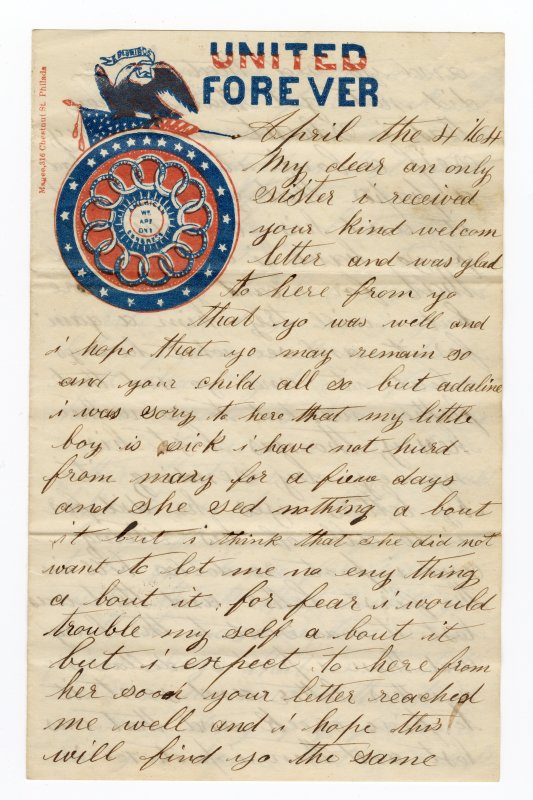 UNITED
FOREVER
Magee, 316 Chestnut St. Philada
WE
ARE
ONE
April the 4 '64
My dear an only
sister i received
your kind welcom
letter and was glad
to here from yo
that yo was well and
i hope that yo may remain so
and your child all so but adaline
i was sory to here that my little
boy is sick i have not hurd
from mary for a fiew days
and she sed nothing a bout
it but i think that she did not
want to let me no eny thing
a bout it for fear i would
trouble my self a bout it
but i expect to here from
her soon your letter reached
me well and i hope this
will find yo the same